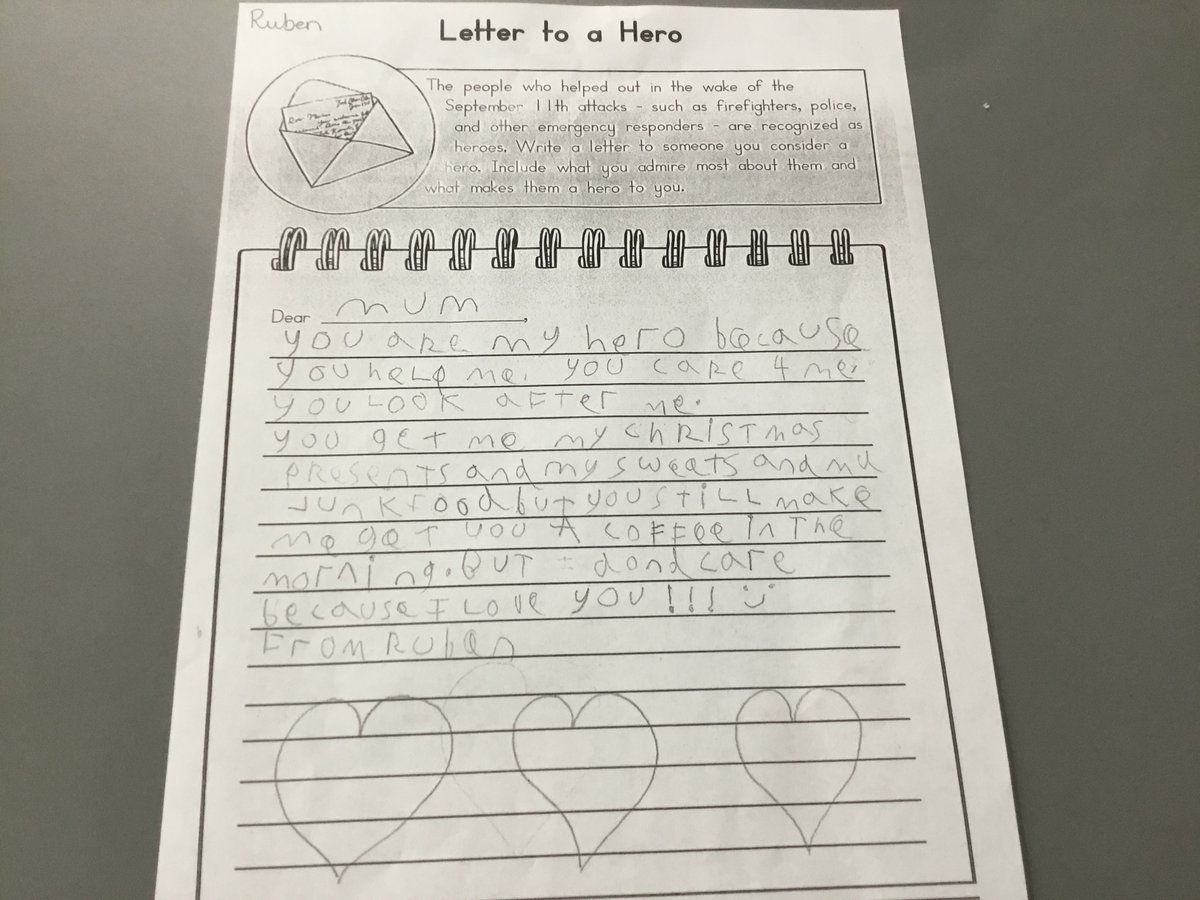 Ruben
Letter to a Hero
The people who helped out in the wake of the
September 11th attacks - such as firefighters, police,
and other emergency responders - are recognized as
heroes. Write a letter to someone you consider a
hero. Include what you admire most about them and
what makes them a hero to you.
Dear MUM,
you are my hero because
you help me. you care 4 me.
you LOOK aFter me.
you get me my chRiSTmas
presents and my sweets and mu
Junk food but you STiLL make
me get you A coFFee in The
morning. BUT I dond care
because I Love you!!! :)
From Ruben